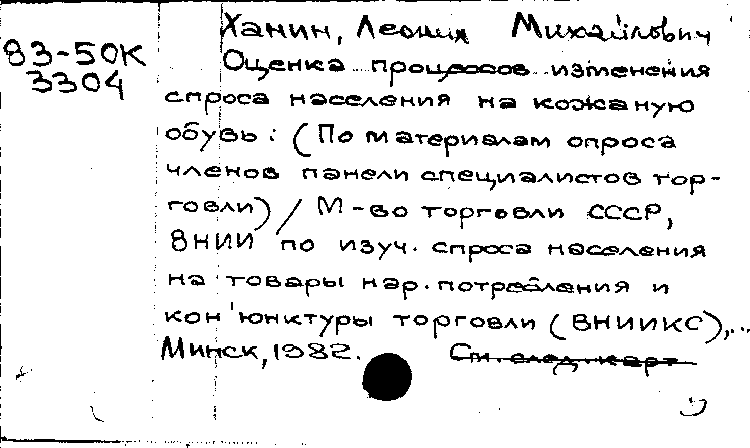 83-50К
3304
Ханин, Леонид Михайлович
Оценка процессов изменения
спроса населения на кожаную
обувь: (По материалам опроса
членов панели специалистов тор-
говли) / М-во торговли СССР,
ВНИИ по изуч. спроса населения
на товары нар. потребления и
кон'юнктуры торговли (ВНИИКС),...
Минск, 1982. См. след. карт